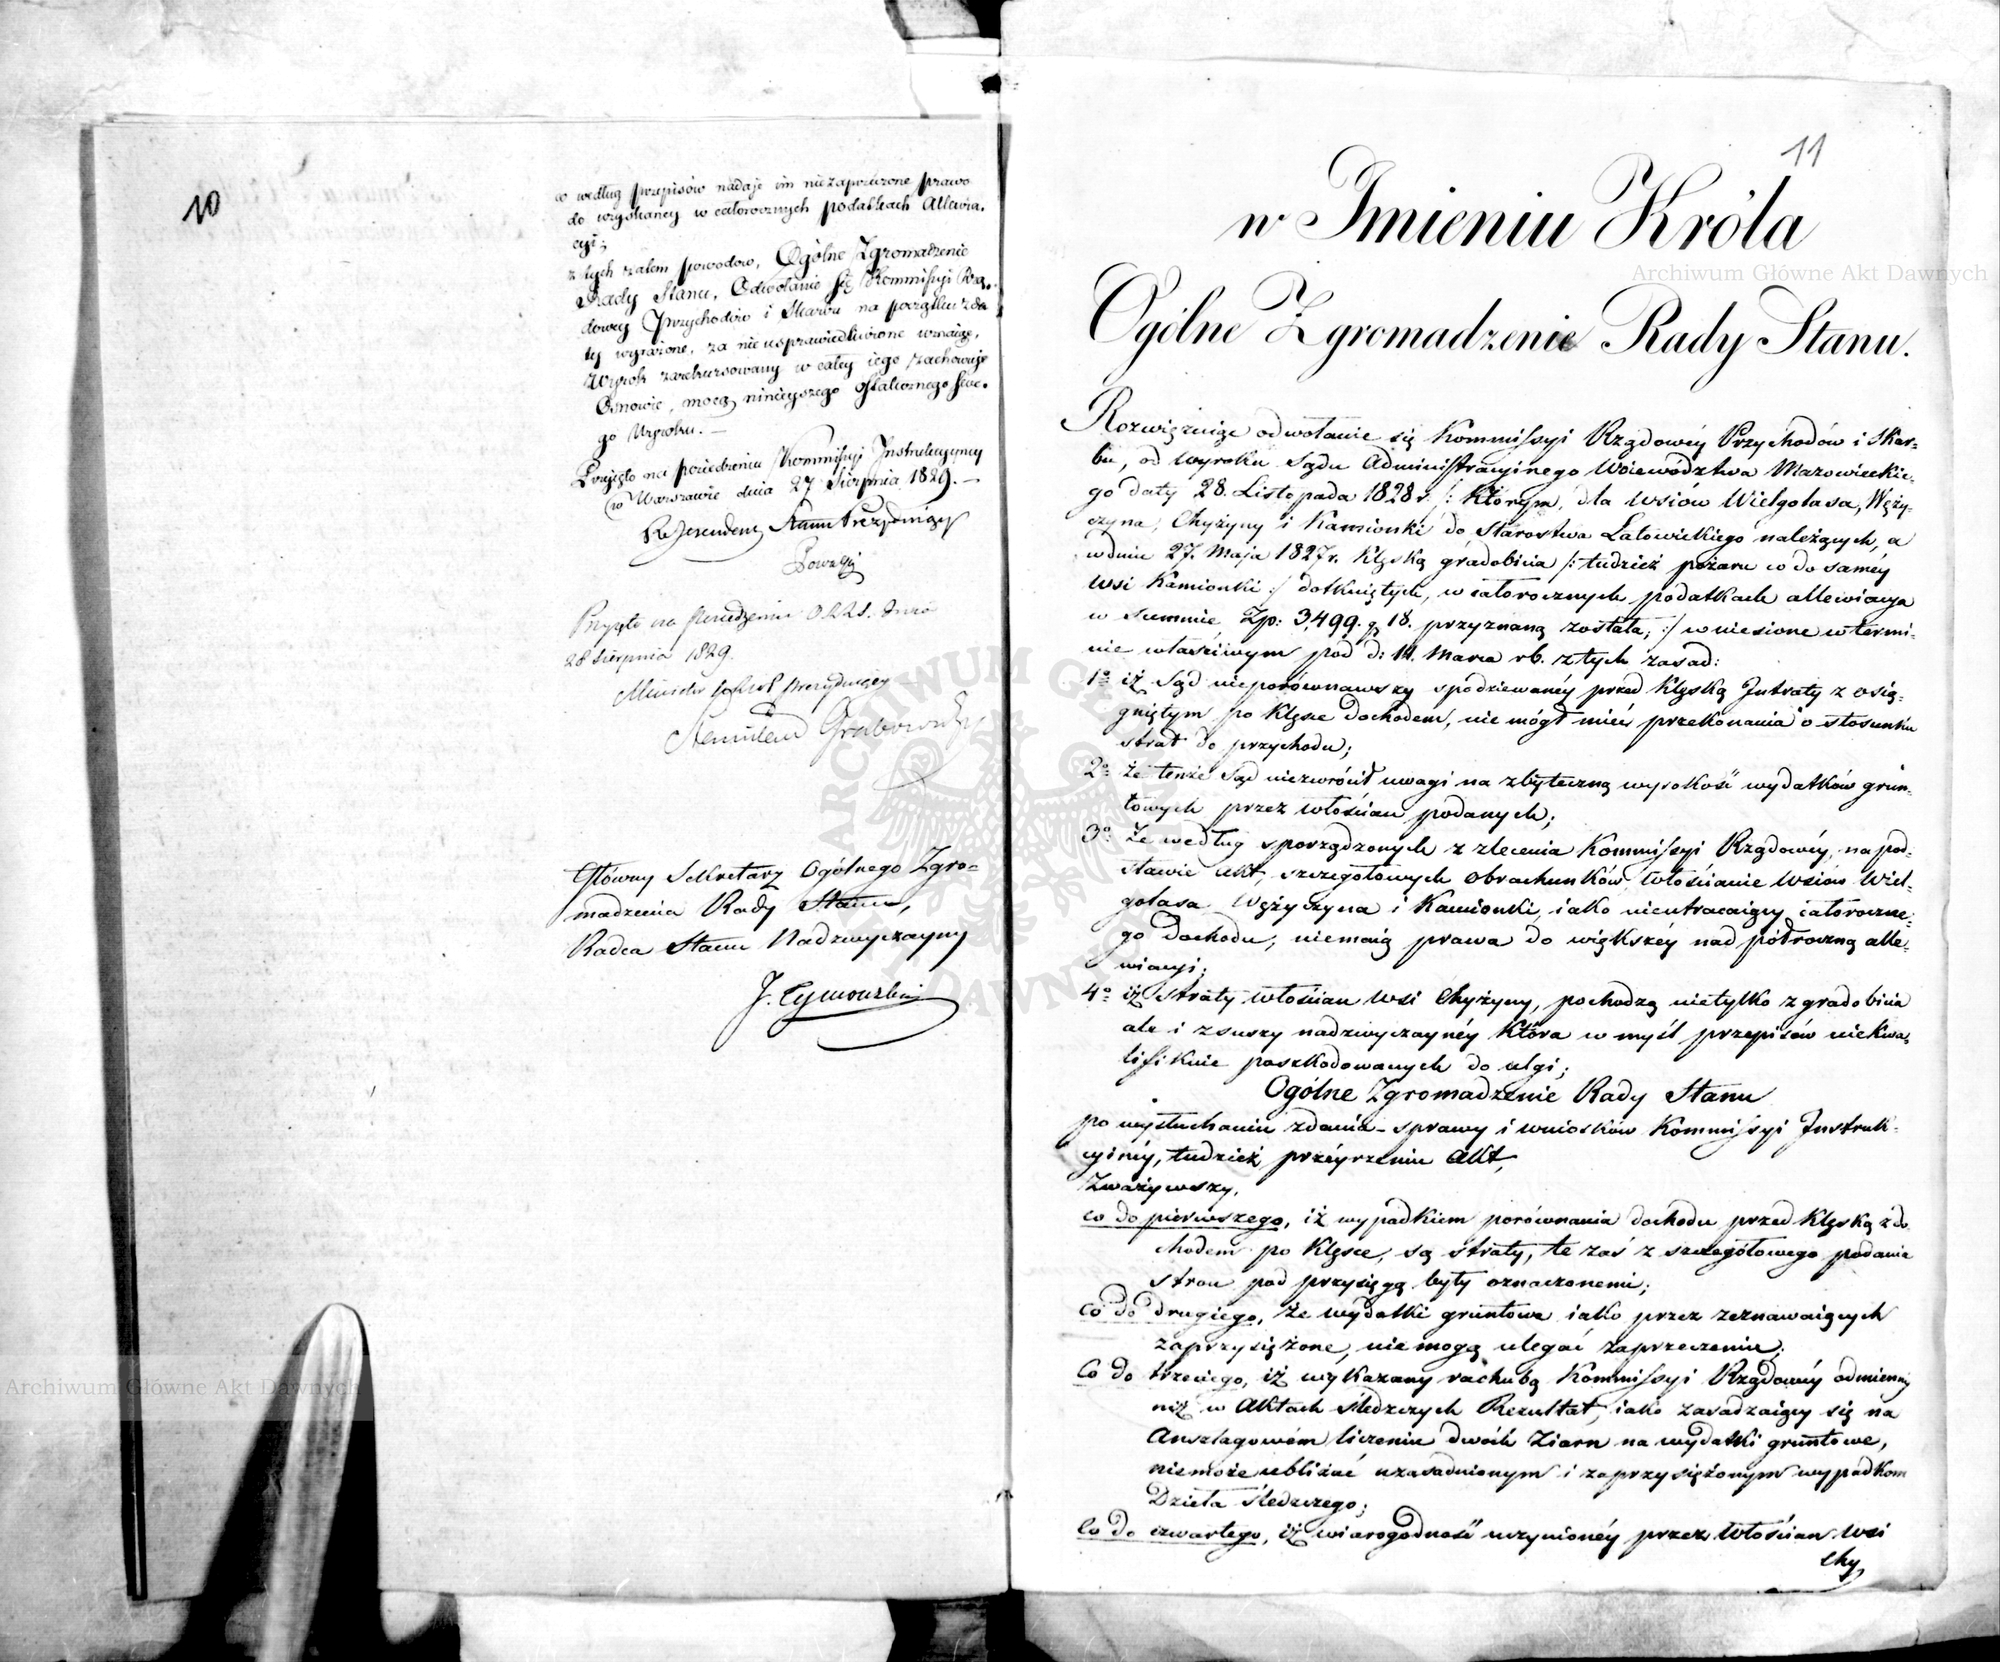 10
co według przepisów nadaje im niezaprzeczone prawo
do uzyskaney w całorocznych podatkach Allewia-
cyi;
z tych zatem powodów, Ogólne Zgromadzenie
Rady Stanu, Odwołanie się Kommissyi Rzą-
dowey Przychodów i Skarbu na początku zda
ty wyrażone, za nieusprawiedliwione uznaię,
Wyrok zarekursowany w całey iego zachowuje
Osnowie, mocą ninieyszego ostatecznego swe-
go Wyroku. —
Przyięto na posiedzeniu Kommissyi Instrukcyyney
w Warszawie dnia 27 Sierpnia 1829. —
Referendarz Stanu Prezyduiący
Przyięto na posiedzeniu O.Z.R.S. dnia
28 sierpnia 1829.
Minister Prezyduiący
Stanisław Grabowski
Główny Sekretarz Ogólnego Zgro-
madzenia Rady Stanu,
Radca Stanu Nadzwyczayny
J. Tymowski
11
w Imieniu Króla
Ogólne Zgromadzenie Rady Stanu.
Rozwiązuiąc odwołanie się Kommissyi Rządowéy Przychodów i Skar-
bu, od wyroku Sądu Administracyinego Woiewództwa Mazowieckie-
go daty 28. Listopada 1828 r. /: którym, dla wsiów Wielgolasa, Węży-
czyna, Chyżyny i Kamionki do Starostwa Latowickiego należących, a
w dniu 27. Maja 1827 r. klęską gradobicia /: tudzież pożaru co do saméy
wsi Kamionki :/ dotkniętych, w całorocznych podatkach allewiacya
w Summie Zp: 3,499. g 18. przyznaną została, :/ wniesione w termi-
nie właściwym pod d: 14. Marca r b. z tych zasad:
1º iż Sąd nieporównawszy spodziewanéy przed klęską Intraty z osią-
gniętym po klęsce dochodem, nie mógł mieć przekonania o stosunku
strat do przychodu;
2º że tenże Sąd niezwrócił uwagi na zbyteczną wysokość wydatków grun-
towych przez włościan podanych;
3º Że według sporządzonych z zlecenia Kommissyi Rządowéy, na pod-
stawie Akt, szczegółowych obrachunków, włościanie wsiów Wiel-
golasa Wężyczyna i Kamionki, iako nieutracaiący całoroczne-
go dochodu, niemaią prawa do większéy nad półroczną alle-
wiacyi;
4º iż straty włościan wsi Chyżyny, pochodzą nietylko z gradobicia
ale i z suszy nadzwyczaynéy która w myśl przepisów niekwa-
lifikuie poszkodowanych do ulgi;
Ogólne Zgromadzenie Rady Stanu
po wysłuchaniu zdania-sprawy i wniosków Kommissyi Instruk-
cyinéy, tudzież przéyrzeniu Akt,
Zważywszy,
co do pierwszego, iż wypadkiem porównania dochodu przed klęską z do
chodem po klęsce, są straty, te zaś z szczegółowego podania
stron pod przysięgą były oznaczonemi;
co do drugiego, że wydatki gruntowe iako przez zeznawaiących
zaprzysiężone, nie mogą ulegać zaprzeczeniu;
Co do trzeciego, iż wykazany rachubą Kommissyi Rządowéy odmienny
niż w Aktach śledczych Rezultat, iako zasadzaiący się na
Anszlagowém liczeniu dwóch Ziarn na wydatki gruntowe,
niemoże ubliżać uzasadnionym i zaprzysiężonym wypadkom
Dzieła śledczego;
Co do czwartego, iż wiarogodność uczynionéy przez włościan wsi
Chy,
Archiwum Główne Akt Dawnych
Archiwum Główne Akt Dawnych